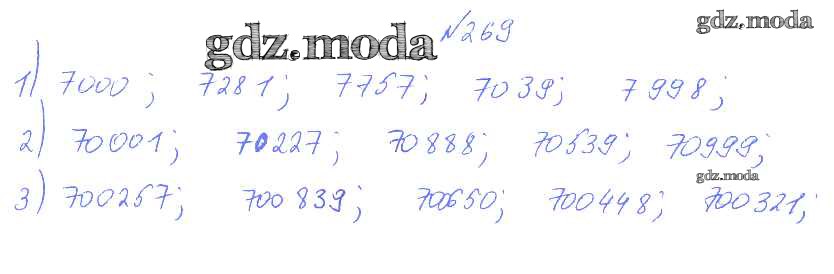 №269
gdz.moda
gdz.moda
1) 7000; 7281; 7757; 7039; 7998;
2) 70001; 70227; 70888; 70539; 70999;
gdz.moda
3) 700257; 700839; 700650; 700448; 700321;